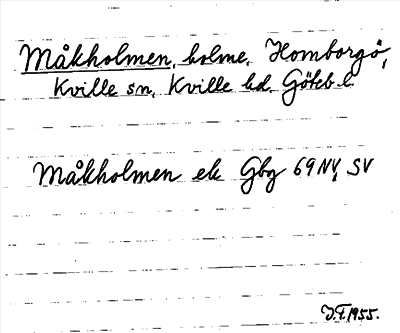 Måkholmen, holme, Homborgö,
Kville sn, Kville hd. Göteb. l.
Måkholmen ek Gbg 69 NV, SV
J.F. 1955.